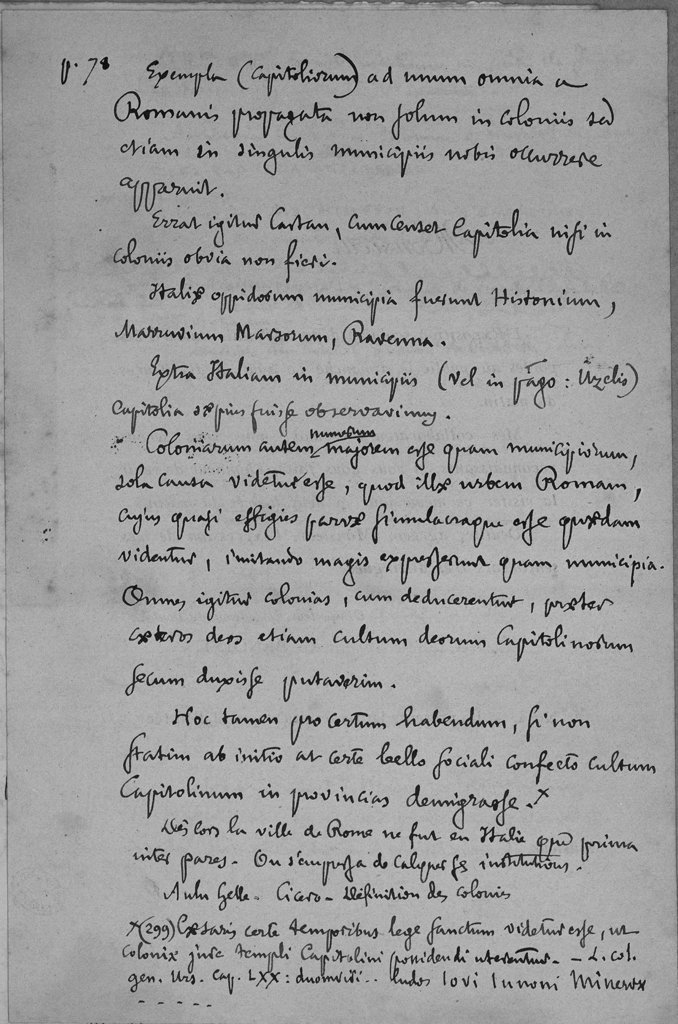 p. 78 Exempla (Capitoliorum) ad unum omnia a
Romanis propagata non solum in coloniis sed
etiam in singulis municipiis nobis occurrere
apparuit.
Errat igitur Castan, cum censet Capitolia nisi in
coloniis obvia non fieri.
Italiæ oppidorum municipia fuerunt Histonium,
Marruvium Marsorum, Ravenna.
Extra Italiam in municipiis (vel in pago : Uzelis)
Capitolia sæpius fuisse observavimus.
Coloniarum autem numerum majorem esse quam municipiorum,
sola causa videtur esse, quod illæ urbem Romam,
cujus quasi effigies parvæ simulacraque esse quædam
videntur, imitando magis expresserunt quam municipia.
Omnes igitur colonias, cum deducerentur, præter
cæteros deos etiam cultum deorum Capitolinorum
secum duxisse putaverim.
Hoc tamen pro certum habendum, si non
statim ab initio at certe bello sociali confecto cultum
Capitolinum in provincias demigrasse. x
Dès lors la ville de Rome ne fut en Italie que prima
inter pares. On s'empressa de calquer ses institutions.
Aulu Gelle - Cicero - Définition des colonies
x (299) Cæsaris certe temporibus lege sanctum videtur esse, ut
coloniæ jure templi Capitolini possidendi uterentur. - L. col.
gen. Urs. Cap. LXX : duomviri .. ludos Iovi Iunoni Minervæ
- - - - -